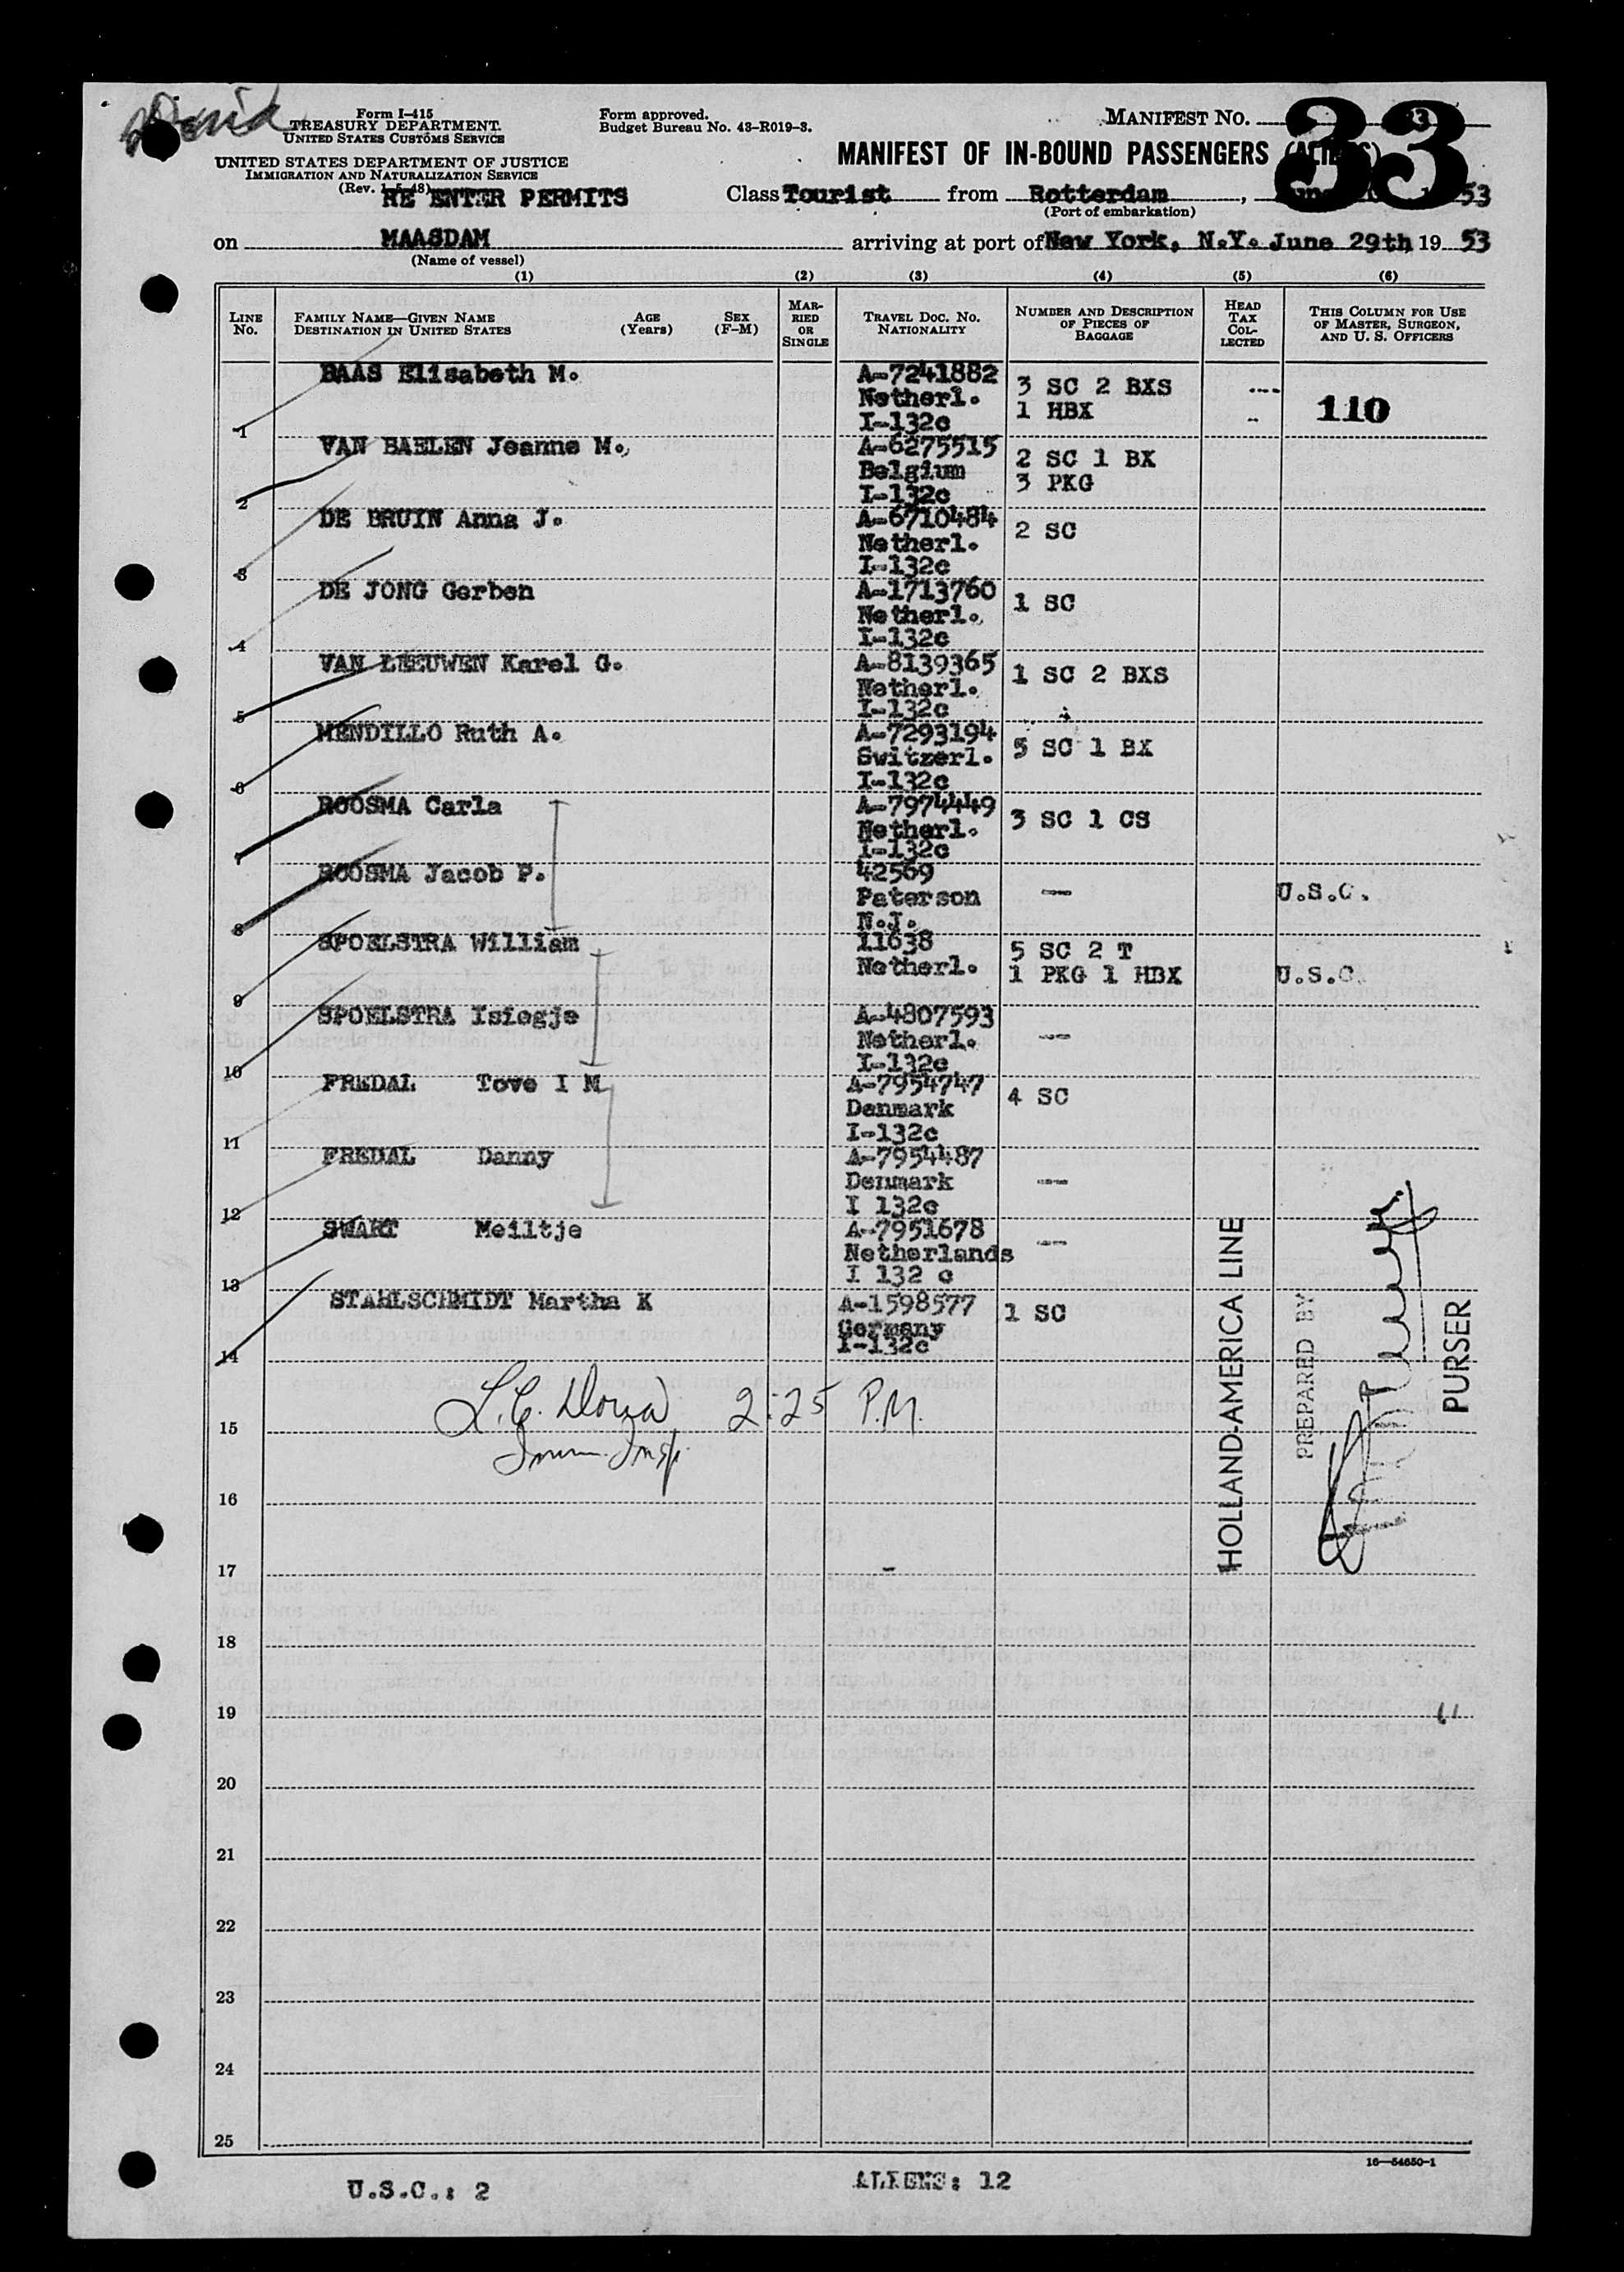 Form I-415
TREASURY DEPARTMENT
UNITED STATES CUSTOMS SERVICE
UNITED STATES DEPARTMENT OF JUSTICE
IMMIGRATION AND NATURALIZATION SERVICE
(Rev. 1-5-48)
RE ENTER PERMITS
Form approved.
Budget Bureau No. 43-R019-3.
MANIFEST NO. 33
MANIFEST OF IN-BOUND PASSENGERS (ALIENS)
Class Tourist from Rotterdam, 53
(Port of embarkation)
on MAASDAM arriving at port of New York, N.Y. June 29th, 19 53
(Name of vessel)
(1) (2) (3) (4) (5) (6)
LINE NO.
FAMILY NAME—GIVEN NAME
DESTINATION IN UNITED STATES
AGE (Years)
SEX (F-M)
MARRIED OR SINGLE
TRAVEL DOC. NO. NATIONALITY
NUMBER AND DESCRIPTION OF PIECES OF BAGGAGE
HEAD TAX COLLECTED
THIS COLUMN FOR USE OF MASTER, SURGEON, AND U. S. OFFICERS
1 BAAS Elisabeth M. A-7241882 3 SC 2 BXS ----
Netherl. 1 HBX -- 110
I-132c
2 VAN BAELEN Jeanne M. A-6275515 2 SC 1 BX
Belgium 3 PKG
I-132c
3 DE BRUIN Anna J. A-6710484 2 SC
Netherl.
I-132c
4 DE JONG Gerben A-1713760 1 SC
Netherl.
I-132c
5 VAN LEEUWEN Karel G. A-8139365 1 SC 2 BXS
Netherl.
I-132c
6 MENDILLO Ruth A. A-7293194 5 SC 1 BX
Switzerl.
I-132c
7 ROOSMA Carla A-7974449 3 SC 1 CS
Netherl.
I-132c
8 ROOSMA Jacob P. 42569 --- U.S.C.
Paterson
N.J.
9 SPOELSTRA William 11638 5 SC 2 T
Netherl. 1 PKG 1 HBX U.S.C.
10 SPOELSTRA Isiegje A-4807593 ---
Netherl.
I-132c
11 FREDAL Tove I M A-7954747 4 SC
Denmark
I-132c
12 FREDAL Danny A-7954487 ---
Denmark
I 132c
13 SWART Meiltje A-7951678 ---
Netherlands
I 132 c
14 STAHLSCHMIDT Martha K A-1598577 1 SC
Germany
I-132c
15 2:25 P.M.
Imm. Insp.
16
17
18
19
20
21
22
23
24
25
HOLLAND-AMERICA LINE
PREPARED BY
PURSER
16—54650-1
U.S.C.: 2 ALIENS: 12